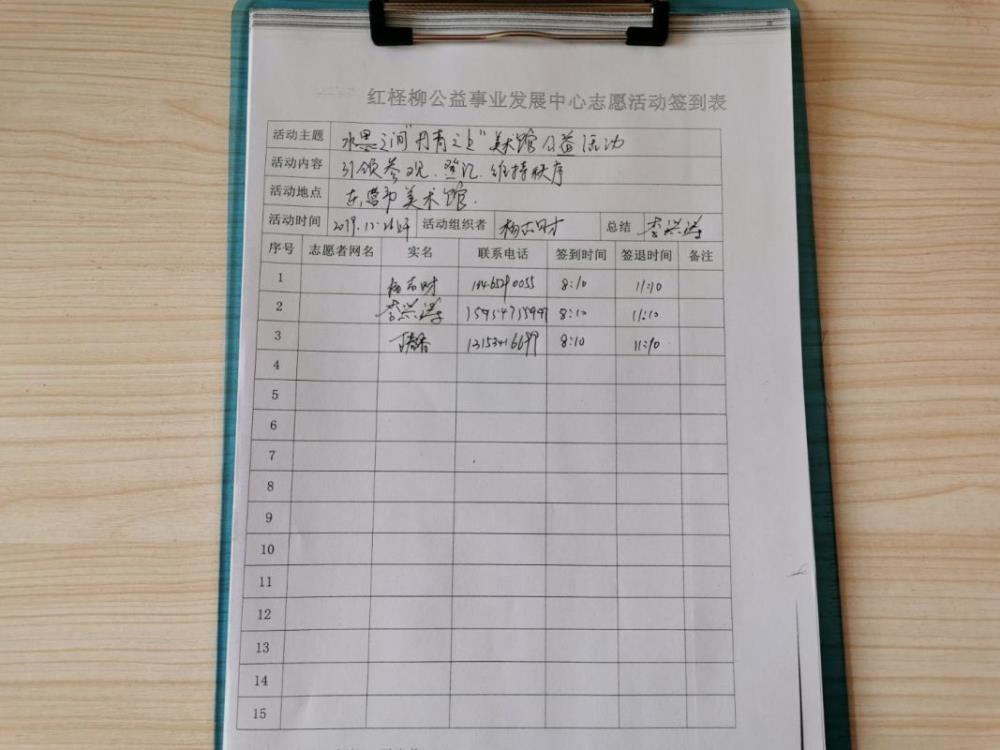 红柽柳公益事业发展中心志愿活动签到表
活动主题 水墨之间"丹青之上"美术馆公益活动
活动内容 引领参观、登记、维持秩序
活动地点 东营市美术馆.
活动时间 活动组织者 总结 李洪涛
序号 志愿者网名 实名 联系电话 签到时间 签退时间 备注
1 8:10 11:10
2 李洪涛 8:10 11:10
3 8:10 11:10
4
5
6
7
8
9
10
11
12
13
14
15